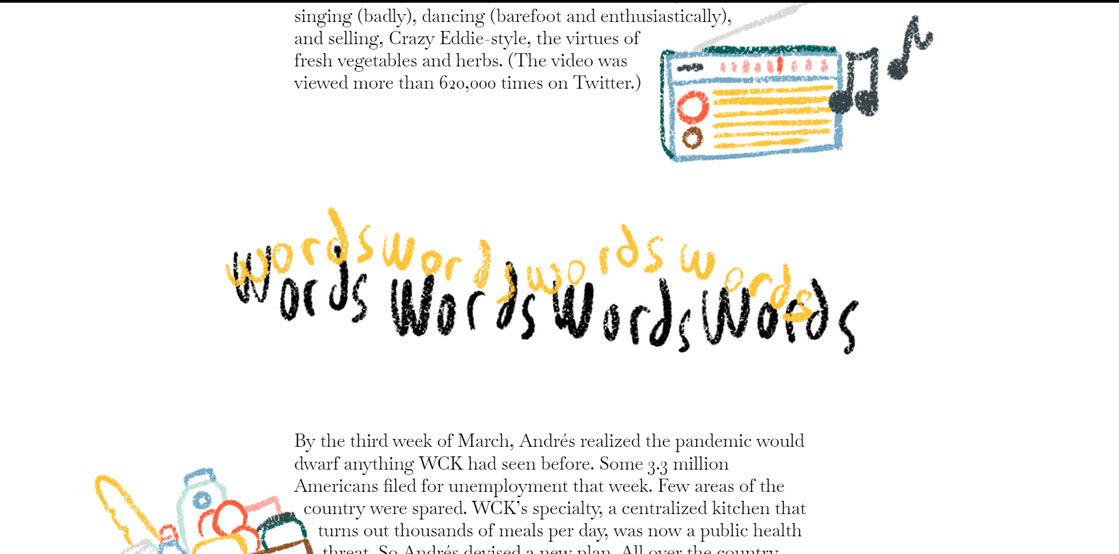 singing (badly), dancing (barefoot and enthusiastically),
and selling, Crazy Eddie-style, the virtues of
fresh vegetables and herbs. (The video was
viewed more than 620,000 times on Twitter.)
words words words words
Words Words Words Words
By the third week of March, Andrés realized the pandemic would
dwarf anything WCK had seen before. Some 3.3 million
Americans filed for unemployment that week. Few areas of the
country were spared. WCK's specialty, a centralized kitchen that
turns out thousands of meals per day, was now a public health
threat. So Andrés devised a new plan. All over the country